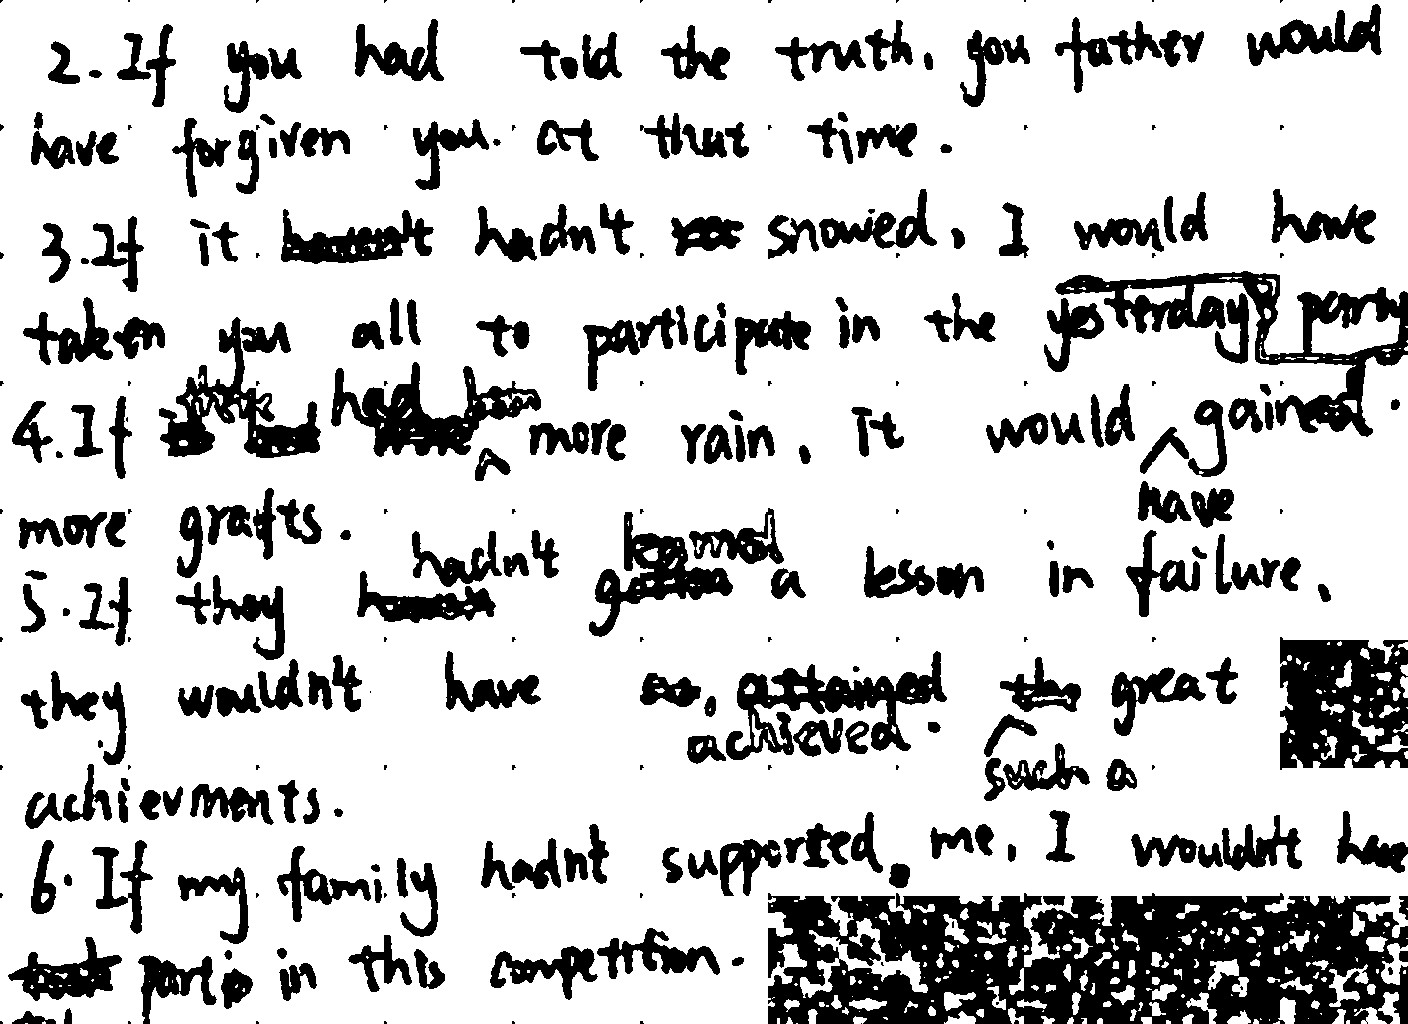 2. If you had told the truth, you father would
have forgiven you. at that time.
3. If it hadn't snowed, I would have
taken you all to participate in the yesterday party
4. If had more rain, it would have gained
more grafts.
5. If they hadn't learned a lesson in failure,
they wouldn't have achieved such a great
achievments.
6. If my family hadn't supported me, I wouldn't have
part in this competition.